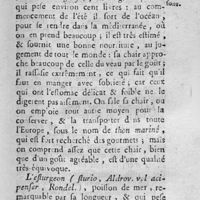 qui pese environ cent livres : au com-
mencement de l'été il sort de l'océan,
pour se rendre dans la méditerranée, où
on en prend beaucoup ; il est très estimé,
& fournit une bonne nourriture, au ju-
gement de tout le monde : sa chair appro-
che beaucoup de celle du veau par le goût ;
il rassasie extrêmement, ce qui fait qu'il
faut en manger avec sobriété, car ceux
qui ont l'estomac délicat & foible ne le
digerent pas aisément. On sale sa chair, ou
on emploie tout autre moyen pour la
conserver, & la transporter dans toute
l'Europe, sous le nom de thon mariné,
qui est fort recherché des gourmets ; mais
on comprend assez que cette chair, bien
que d'un goût agréable, est d'une qualité
très équivoque.
L'esturgeon ( sturio, Aldrov. vel aci-
penser, Rondel. ) , poisson de mer, re-
marquable par sa longueur, & qui pese